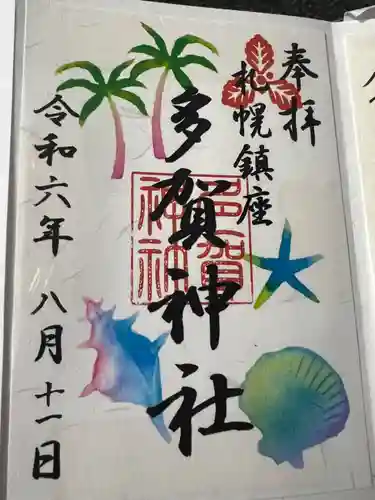 奉拝
札幌鎮座
多賀神社
多賀
神社
令和六年 八月十一日